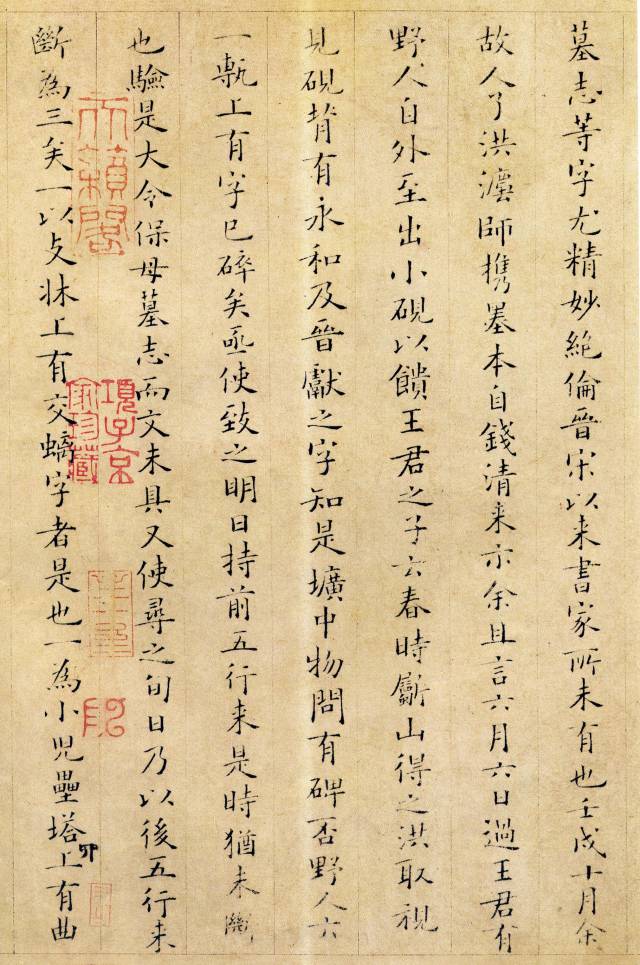 墓志等字尤精妙絶倫晉宋以来書家所未有也壬戌十月余
故人了洪瀍師携墨本自錢清来示余且言六月六日過王君有
野人自外至出小硯以饋王君之子云春時斸山得之洪取視
見硯背有永和及晉獻之字知是壙中物問有碑否野人云
一甎上有字已碎矣亟使致之明日持前五行来是時猶未斷
也驗是大令保母墓志而文未具又使尋之旬日乃以後五行来
斷為三矣一以支牀上有交螭字者是也一為小児壘塔上有曲
卯
天籟閣
項子京
家珍藏